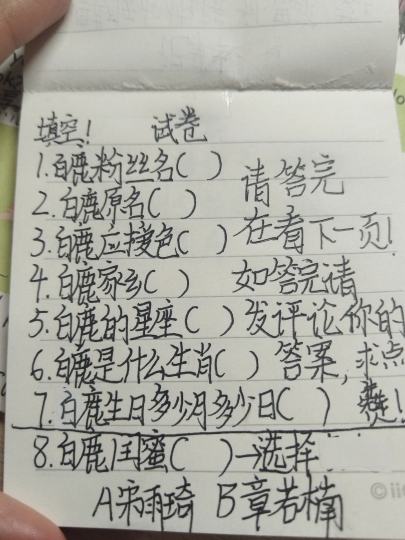 填空! 试卷
1.白鹿粉丝名( )
2.白鹿原名( )
3.白鹿应援色( )
4.白鹿家乡( )
5.白鹿的星座( )
6.白鹿是什么生肖( )
7.白鹿生日多少月多少日( )
8.白鹿闺蜜( )—选择
A宋雨琦 B章若楠
请答完
在看下一页!
如答完请
发评论你的
答案,求点
赞!